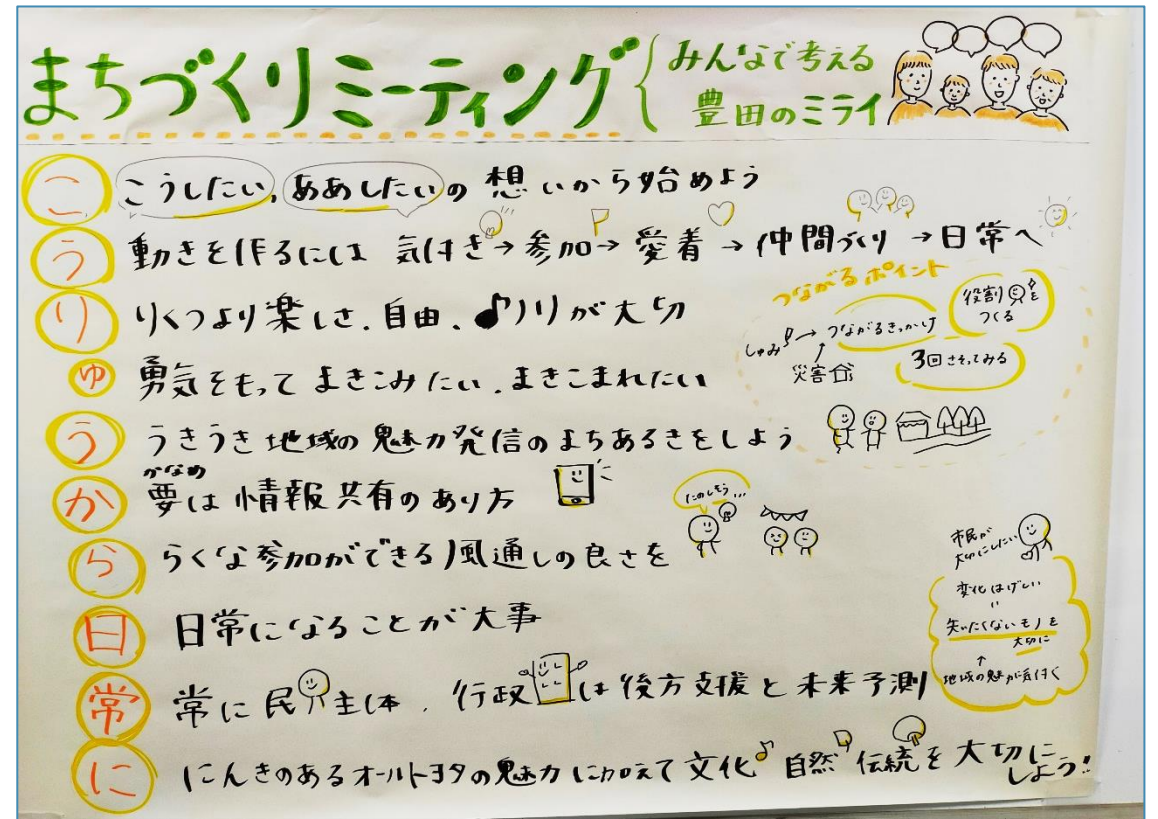 まちづくりミーティング
みんなで考える
豊田のミライ
こ こうしたい,ああしたいの 想いから始めよう
う 動きを作るには 気付き→参加→愛着→仲間づくり→日常へ
り りくつより楽しさ.自由、♪ノリが大切
ゆ 勇気をもって まきこみたい.まきこまれたい
う うきうき地域の魅力発信のまちあるきをしよう
かなめ
か 要は情報共有のあり方
ら らくな参加ができる風通しの良さを
日 日常になることが大事
常 常に民主体.行政は後方支援と未来予測
に にんきのあるオールトヨタの魅力に加えて文化♪自然 伝統を大切に
しよう!
つながるポイント
しゅみ→つながるきっかけ
↑
災害
役割を
つくる
3回さそってみる
たのしそう…
市民が
大切にしたい
変化はげしい
〃
失いたくないモノを
大切に
↑
地域の魅力気付く